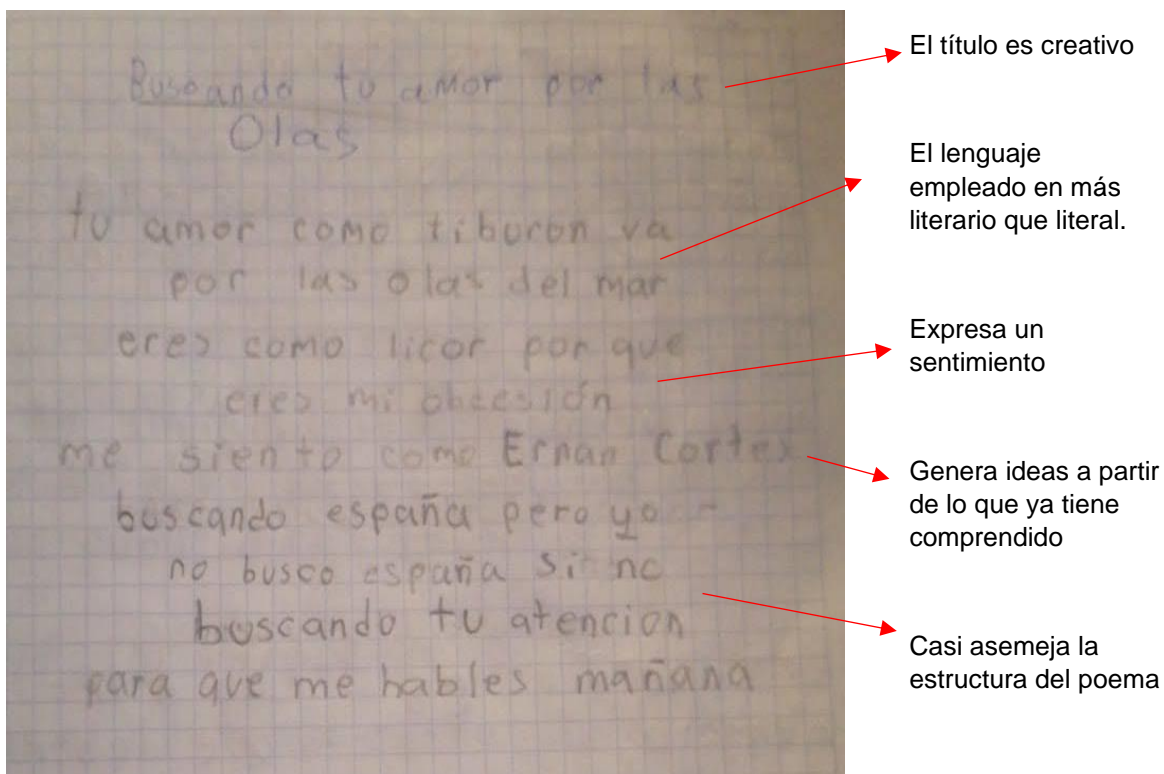 Buscando tu amor por las
Olas
tu amor como tiburon va
por las olas del mar
eres como licor por que
eres mi obcesión
me siento como Ernan Cortes
buscando españa pero yo -
no busco españa si no
buscando tu atencion
para que me hables mañana
El título es creativo
El lenguaje
empleado en más
literario que literal.
Expresa un
sentimiento
Genera ideas a partir
de lo que ya tiene
comprendido
Casi asemeja la
estructura del poema